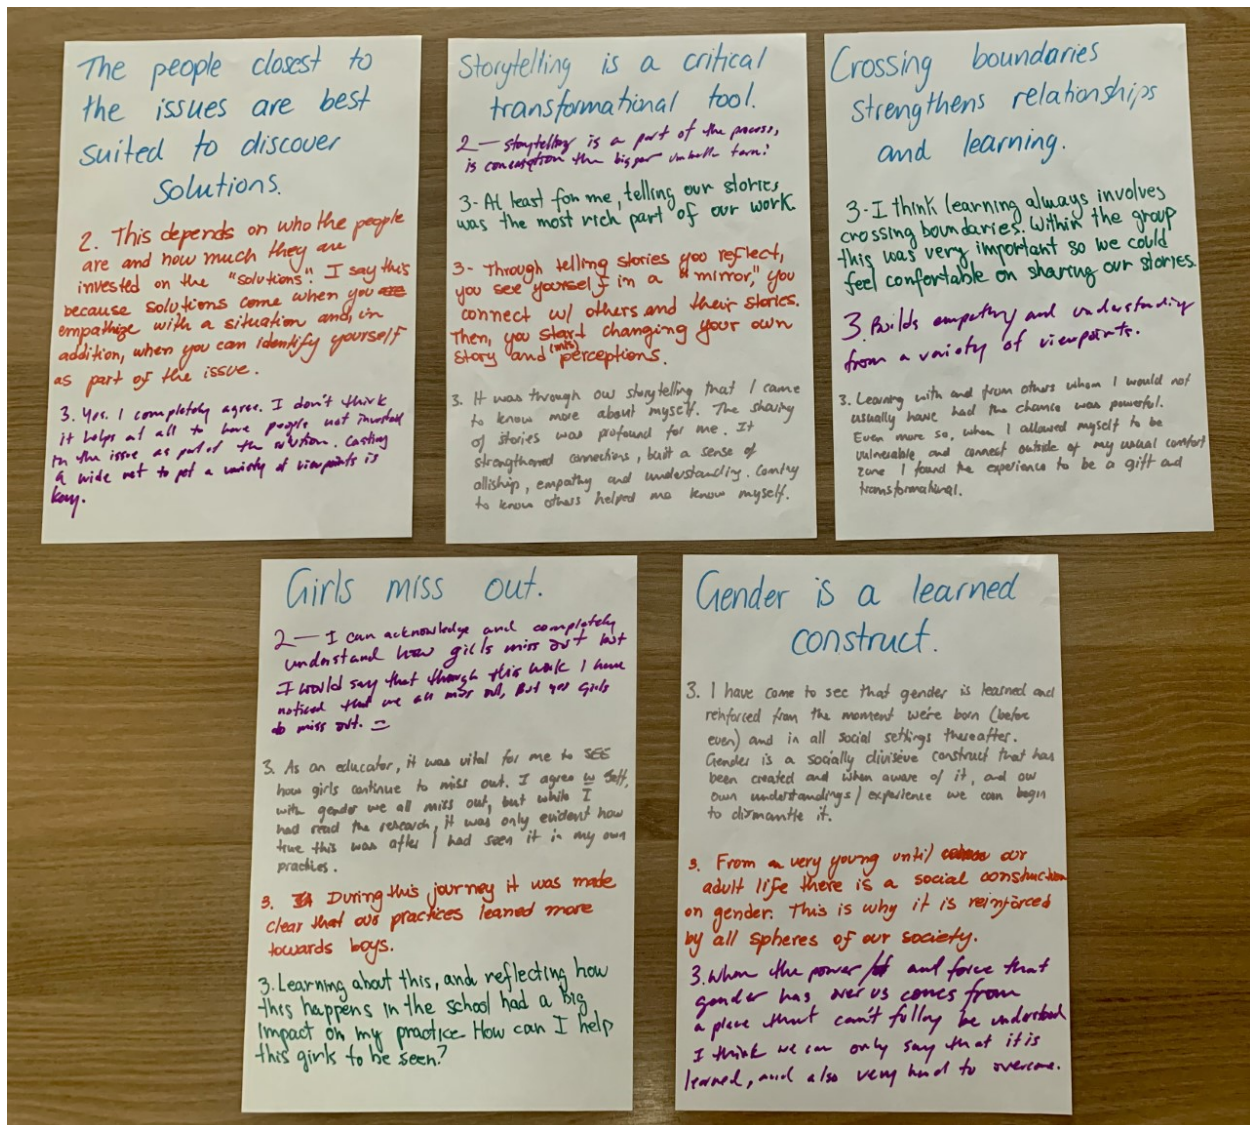 The people closest to
the issues are best
suited to discover
solutions.
2. This depends on who the people
are and how much they are
invested on the "solutions". I say this
because solutions come when you
empathize with a situation and, in
addition, when you can identify yourself
as part of the issue.
3. Yes. I completely agree. I don't think
it helps at all to have people not invested
in the issue as part of the solution. Casting
a wide net to get a variety of viewpoints is
key.
Storytelling is a critical
transformational tool.
2 — storytelling is a part of the process,
is conversation the bigger umbrella term?
3- At least for me, telling our stories
was the most rich part of our work.
3- Through telling stories you reflect,
you see yourself in a "mirror," you
connect w/ others and their stories.
Then, you start changing your own
story and (mis) perceptions.
3. It was through our storytelling that I came
to know more about myself. The sharing
of stories was profound for me. It
strengthened connections, built a sense of
alliship, empathy and understanding. Coming
to know others helped me know myself.
Crossing boundaries
strengthens relationships
and learning.
3- I think learning always involves
crossing boundaries. Within the group
this was very important so we could
feel confortable on sharing our stories.
3. Builds empathy and understanding
from a variety of viewpoints.
3. Learning with and from others whom I would not
usually have had the chance was powerful.
Even more so, when I allowed myself to be
vulnerable and connect outside of my usual comfort
zone I found the experience to be a gift and
transformational.
Girls miss out.
2 — I can acknowledge and completely
understand how girls miss out but
I would say that through this work I have
noticed that we all miss out, But yes girls
do miss out.
3. As an educator, it was vital for me to SEE
how girls continue to miss out. I agree w
with gender we all miss out, but while I
had read the research, it was only evident how
true this was after I had seen it in my own
practices.
3. During this journey it was made
clear that our practices leaned more
towards boys.
3. Learning about this, and reflecting how
this happens in the school had a big
impact on my practice. How can I help
this girls to be seen?
Gender is a learned
construct.
3. I have come to see that gender is learned and
reinforced from the moment we're born (before
even) and in all social settings thereafter.
Gender is a socially divisive construct that has
been created and when aware of it, and our
own understandings/experience we can begin
to dismantle it.
3. From a very young until our
adult life there is a social construction
on gender. This is why it is reinforced
by all spheres of our society.
3. When the power and force that
gender has over us comes from
a place that can't fully be understood
I think we can only say that it is
learned, and also very hard to overcome.